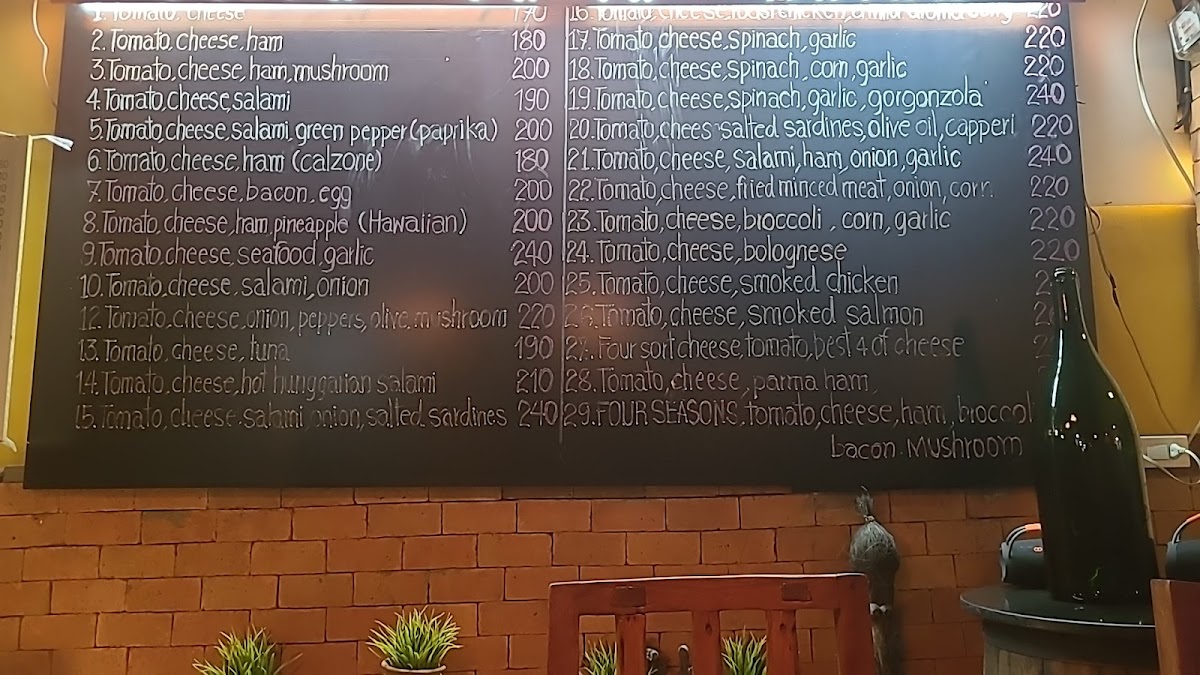 1. Tomato, cheese 170
2. Tomato, cheese, ham 180
3. Tomato, cheese, ham, mushroom 200
4. Tomato, cheese, salami 190
5. Tomato, cheese, salami, green pepper (paprika) 200
6. Tomato, cheese, ham (calzone) 180
7. Tomato, cheese, bacon, egg 200
8. Tomato, cheese, ham, pineapple (Hawaiian) 200
9. Tomato, cheese, seafood, garlic 240
10. Tomato, cheese, salami, onion 200
12. Tomato, cheese, onion, peppers, olive, mushroom 220
13. Tomato, cheese, tuna 190
14. Tomato, cheese, hot hunggarian salami 210
15. Tomato, cheese, salami, onion, salted sardines 240
16. Tomato, cheese, 220
17. Tomato, cheese, spinach, garlic 220
18. Tomato, cheese, spinach, corn, garlic 220
19. Tomato, cheese, spinach, garlic, gorgonzola 240
20. Tomato, chees salted sardines, olive oil, capperi 220
21. Tomato, cheese, salami, ham, onion, garlic 240
22. Tomato, cheese, fried minced meat, onion, corn. 220
23. Tomato, cheese, broccoli, corn, garlic 220
24. Tomato, cheese, bolognese 220
25. Tomato, cheese, smoked chicken
26. Tomato, cheese, smoked salmon
27. Four sort cheese, tomato, best 4 of cheese
28. Tomato, cheese, parma ham,
29. FOUR SEASONS, tomato, cheese, ham, broccol
bacon. Mushroom